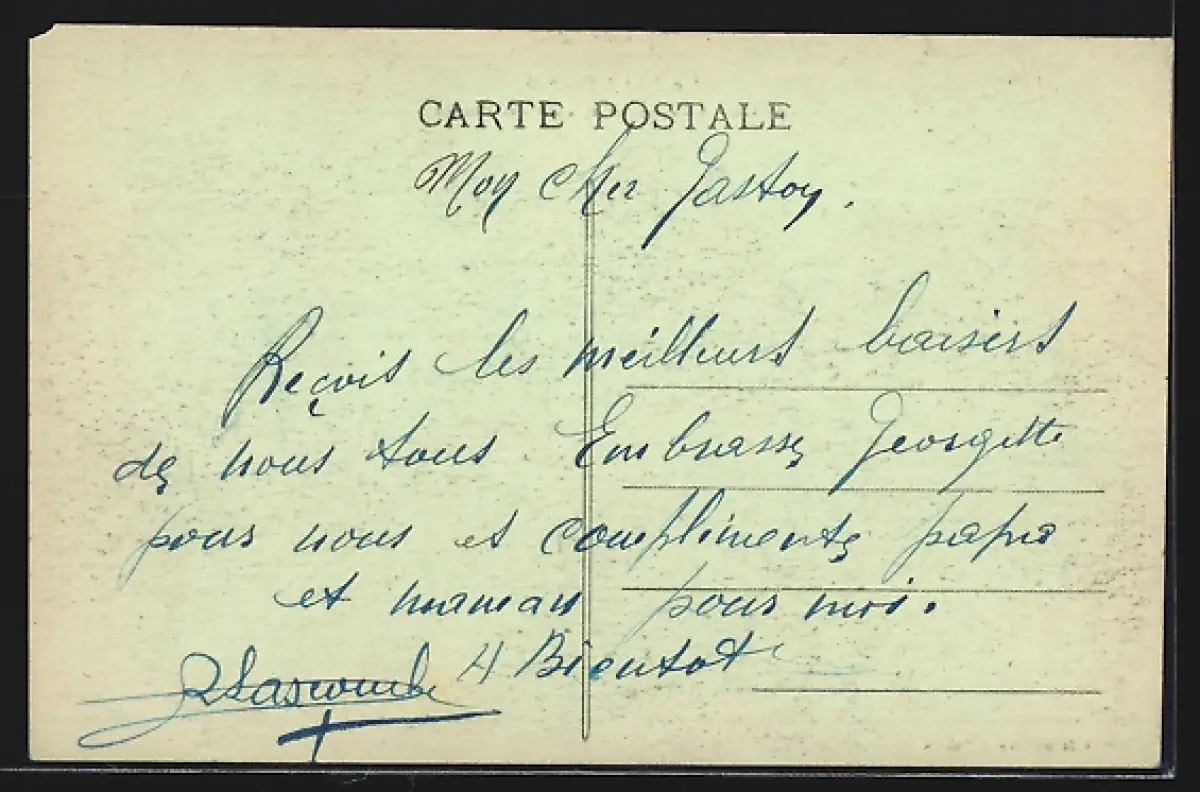 CARTE POSTALE
Mon cher Gaston.
Reçois les meilleurs baisers
de nous tous Embrasse Georgette
pour nous et complimente papa
et maman pour moi.
A Bientot
Lascombe